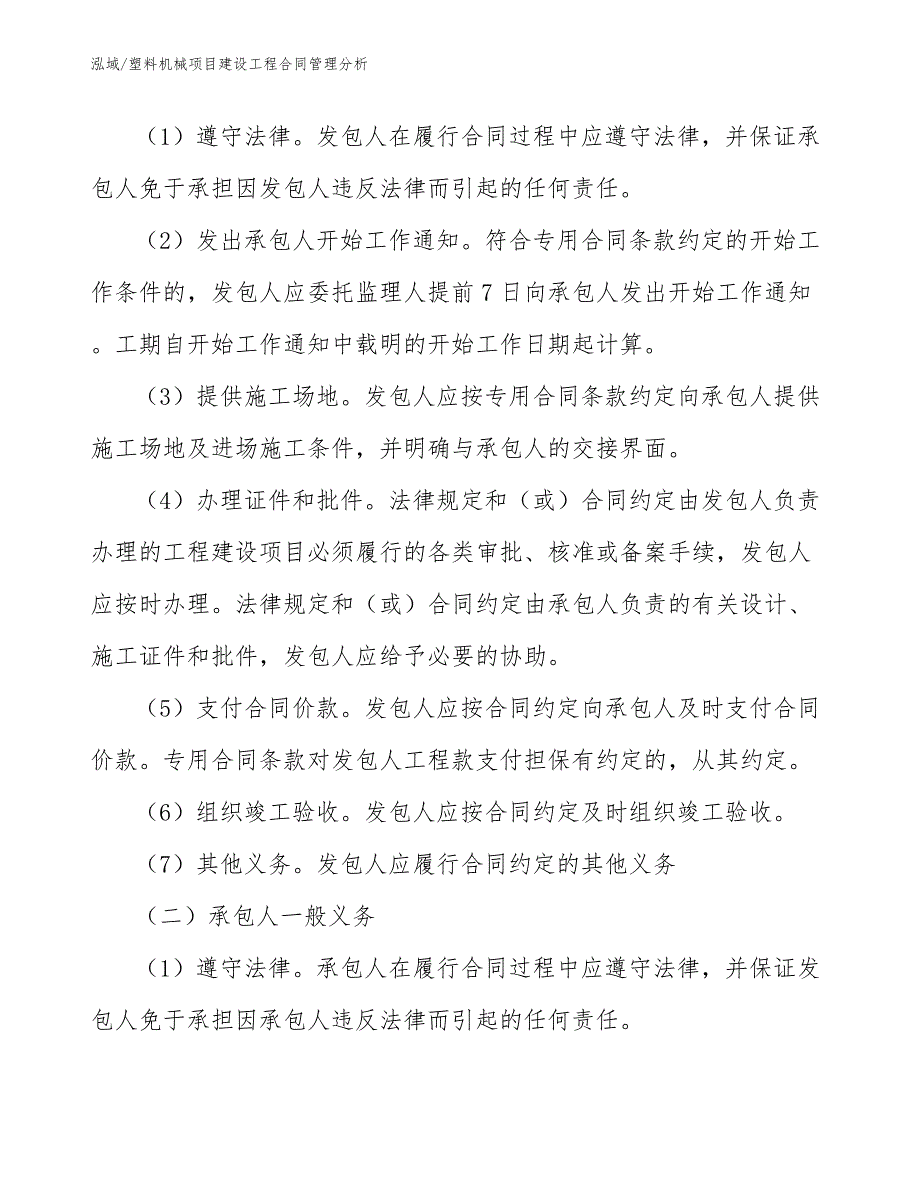 泓域/塑料机械项目建设工程合同管理分析
（1）遵守法律。发包人在履行合同过程中应遵守法律，并保证承
包人免于承担因发包人违反法律而引起的任何责任。
（2）发出承包人开始工作通知。符合专用合同条款约定的开始工
作条件的，发包人应委托监理人提前 7 日向承包人发出开始工作通知
。工期自开始工作通知中载明的开始工作日期起计算。
（3）提供施工场地。发包人应按专用合同条款约定向承包人提供
施工场地及进场施工条件，并明确与承包人的交接界面。
（4）办理证件和批件。法律规定和（或）合同约定由发包人负责
办理的工程建设项目必须履行的各类审批、核准或备案手续，发包人
应按时办理。法律规定和（或）合同约定由承包人负责的有关设计、
施工证件和批件，发包人应给予必要的协助。
（5）支付合同价款。发包人应按合同约定向承包人及时支付合同
价款。专用合同条款对发包人工程款支付担保有约定的，从其约定。
（6）组织竣工验收。发包人应按合同约定及时组织竣工验收。
（7）其他义务。发包人应履行合同约定的其他义务
（二）承包人一般义务
（1）遵守法律。承包人在履行合同过程中应遵守法律，并保证发
包人免于承担因承包人违反法律而引起的任何责任。